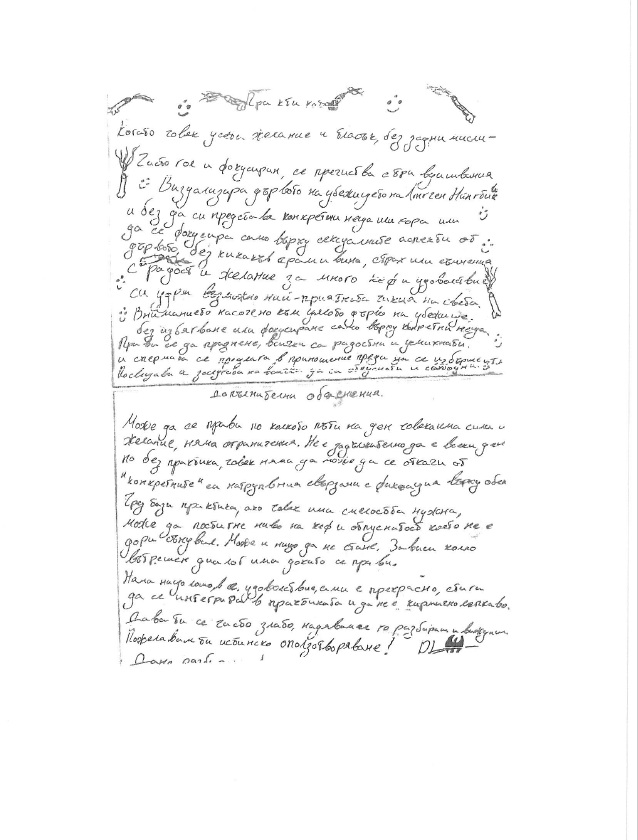 Практика
Когато човек усеща желание и блясък, без задни мисли -
Чисто гол и фокусиран, се пречиства с три вдишвания
Визуализира дървото на убежището на
и без да си представя конкретни неща или хора или
да се фокусира само върху сексуалните аспекти от
дървото, без никакъв срам и вина, страх или съмнения
с радост и желание за много кеф и удоволствие
си удря възможно най-приятната чикия на света.
Вниманието насочено към цялото дърво на убежище.
без избягване или фокусиране само върху конкретни неща.
Прави се да празнене, всички са радостни и усмихнати.
и спермата се предлага в приношение преди да се избърше
Посвещава заслугата на всички да са
допълнителни обяснения.
Може да се прави по колкото пъти на ден човек има сила и
желание, няма ограничения. Не е задължително да е всеки ден
но без практика, човек няма да може да се откачи от
"конкретните" си натрупвания свързани с фиксация върху
Чрез тази практика, ако човек има смелостта нужна,
може да постигне ниво на кеф и отпуснатост което не е
дори сънувал. Може и нищо да не стане. Зависи какъв
вътрешен диалог има докато се прави.
Няма нищо лошо в удоволствие, сами е прекрасно, стига
да се интегрира в практиката и да не е
Давам ти се чисто злато, надявам се го разбираш и
Пожелавам ти истинско оползотворяване! DL